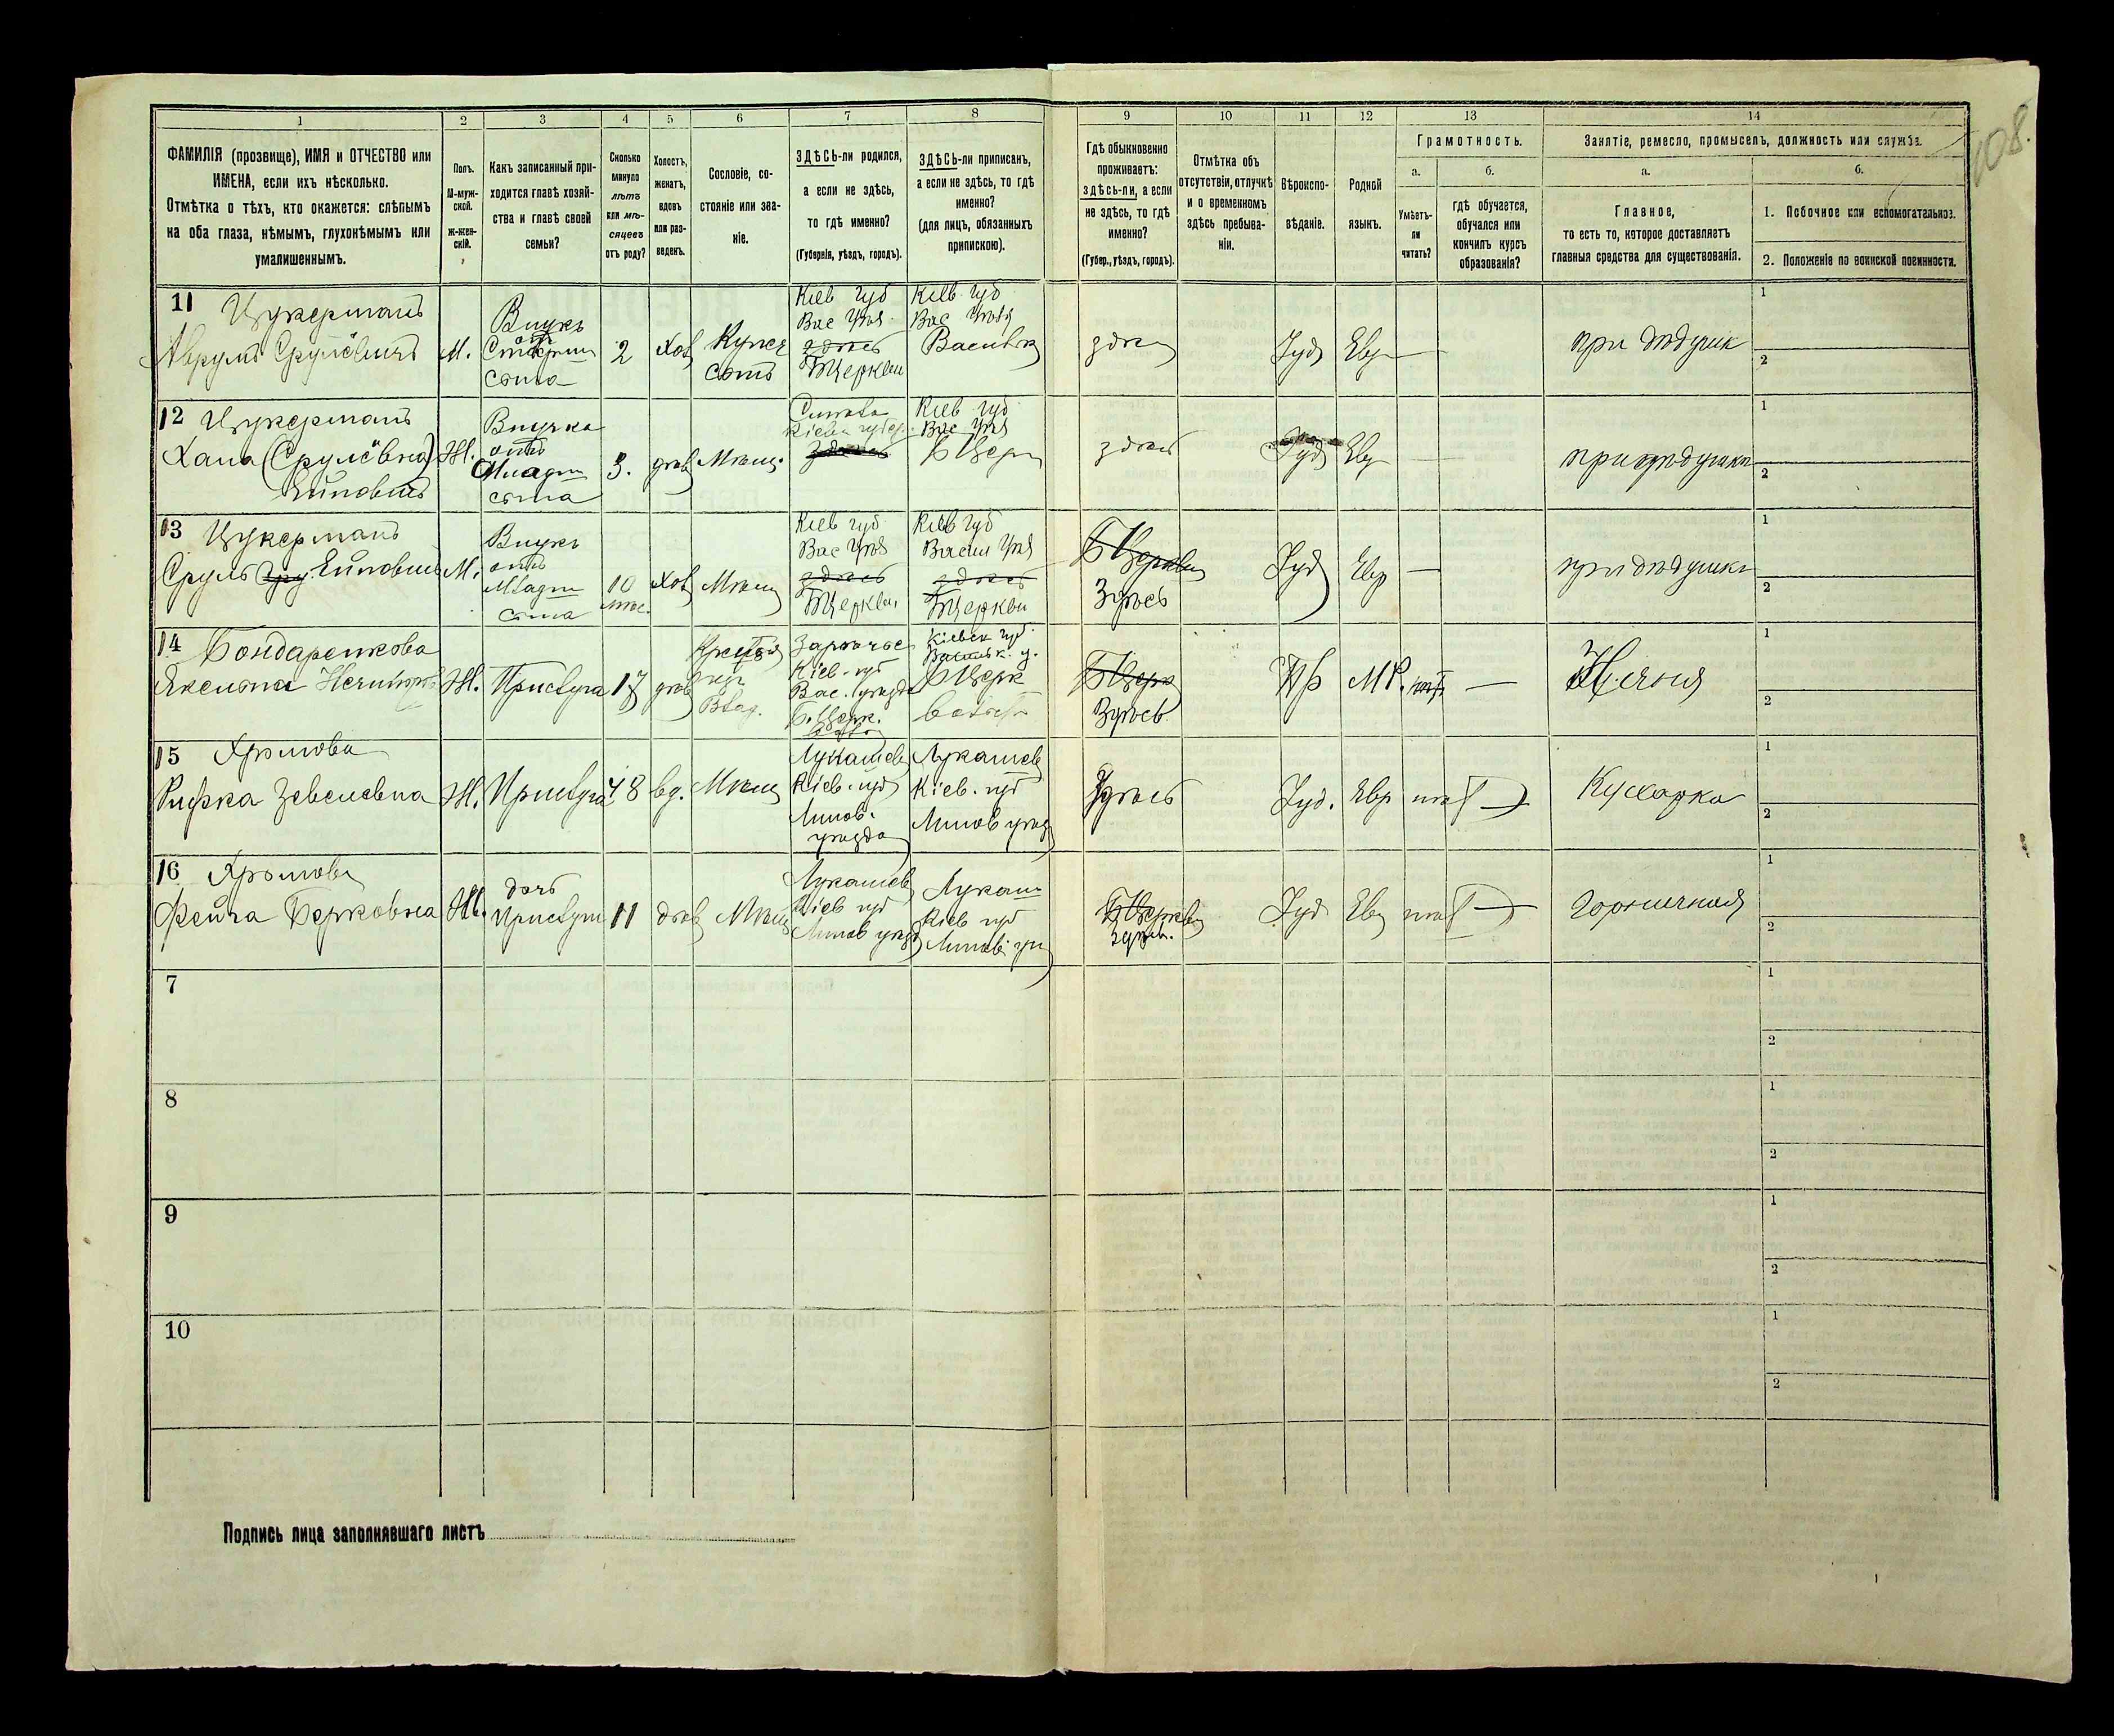 108.
1 2 3 4 5 6 7 8 9 10 11 12 13 14
ФАМИЛІЯ (прозвище), ИМЯ и ОТЧЕСТВО или
ИМЕНА, если ихъ нѣсколько.
Отмѣтка о тѣхъ, кто окажется: слѣпымъ
на оба глаза, нѣмымъ, глухонѣмымъ или
умалишеннымъ.
Полъ.
М-муж-
ской.
ж-жен-
скій.
Какъ записанный при-
ходится главѣ хозяй-
ства и главѣ своей
семьи?
Сколько
минуло
лѣтъ
или мѣ-
сяцевъ
отъ роду?
Холостъ,
женатъ,
вдовъ
или раз-
веденъ.
Сословіе, со-
стояніе или зва-
ніе.
ЗДѢСЬ-ли родился,
а если не здѣсь,
то гдѣ именно?
(Губернія, уѣздъ, городъ).
ЗДѢСЬ-ли приписанъ,
а если не здѣсь, то гдѣ
именно?
(для лицъ, обязанныхъ
припискою).
Гдѣ обыкновенно
проживаетъ:
здѣсь-ли, а если
не здѣсь, то гдѣ
именно?
(Губер., уѣздъ, городъ).
Отмѣтка объ
отсутствіи, отлучкѣ
и о временномъ
здѣсь пребыва-
ніи.
Вѣроиспо-
вѣданіе.
Родной
языкъ.
Грамотность.
а.
Умѣетъ-
ли
читать?
б.
гдѣ обучается,
обучался или
кончилъ курсъ
образованія?
Занятіе, ремесло, промыселъ, должность или служба.
а.
Главное,
то есть то, которое доставляетъ
главныя средства для существованія.
б.
1. Побочное или вспомогательное.
2. Положеніе по воинской повинности.
11 Цукерманъ
Аврумъ Срулёвичъ
М.
Внукъ
отъ
Старш
сына
2
Хол
Купеч
сынъ
Кіев губ
Вас уѣз
здѣсь
БЦеркви
Кіев губ
Вас уѣзд
Васильк
здѣсь
Іуд
Евр
—
при дѣдушк
1
2
12 Цукерманъ
Хана (Срулёвна)
Ж.
Внучка
отъ
Младш
сына
3.
дѣв
Мѣщ.
здѣсь
Кіев губ
Вас уѣз
БЦерк
здѣсь
Іуд
Евр
—
при дѣдушки
1
2
13 Цукерманъ
Сруль
М.
Внукъ
отъ
Младш
сына
10
мѣс.
Хол
Мѣщ
Кіев губ
Вас уѣз
здѣсь
БЦеркви
Кіев губ
Васил уѣз
здѣсь
БЦеркви
БЦеркви
Здѣсь
Іуд
Евр
—
при дѣдушки
1
2
14 Бондаренкова
Ж.
Прислуга
17
дѣв
Кіев. губ
Вас. уѣзда
Б. Церк.
Кіевск губ
Васильк. у.
БЦерк
БЦерк
Здѣсь
Пр
МР.
нѣт
—
Няня
1
2
15 Хромова
Рифка Зевелевна
Ж.
Прислуга
48
вд.
Мѣщ
Лукашев
Кіев. губ
Липов.
уѣзда
Лукашев
Кіев. губ
Липов уѣзд
Здѣсь
Іуд.
Евр
нѣт
—
Кухарка
1
2
16 Хромова
Фейга Берковна
Ж.
дочь
Прислуги
11
дѣв
Мѣщ
Лукашев
Кіев губ
Липов уѣзд
Лукаш
Кіев губ
Липов уѣ
БЦеркви
Здѣсь.
Іуд
Евр
нѣт
—
Горничная
1
2
7
1
2
8
1
2
9
1
2
10
1
2
Подпись лица заполнявшаго листъ